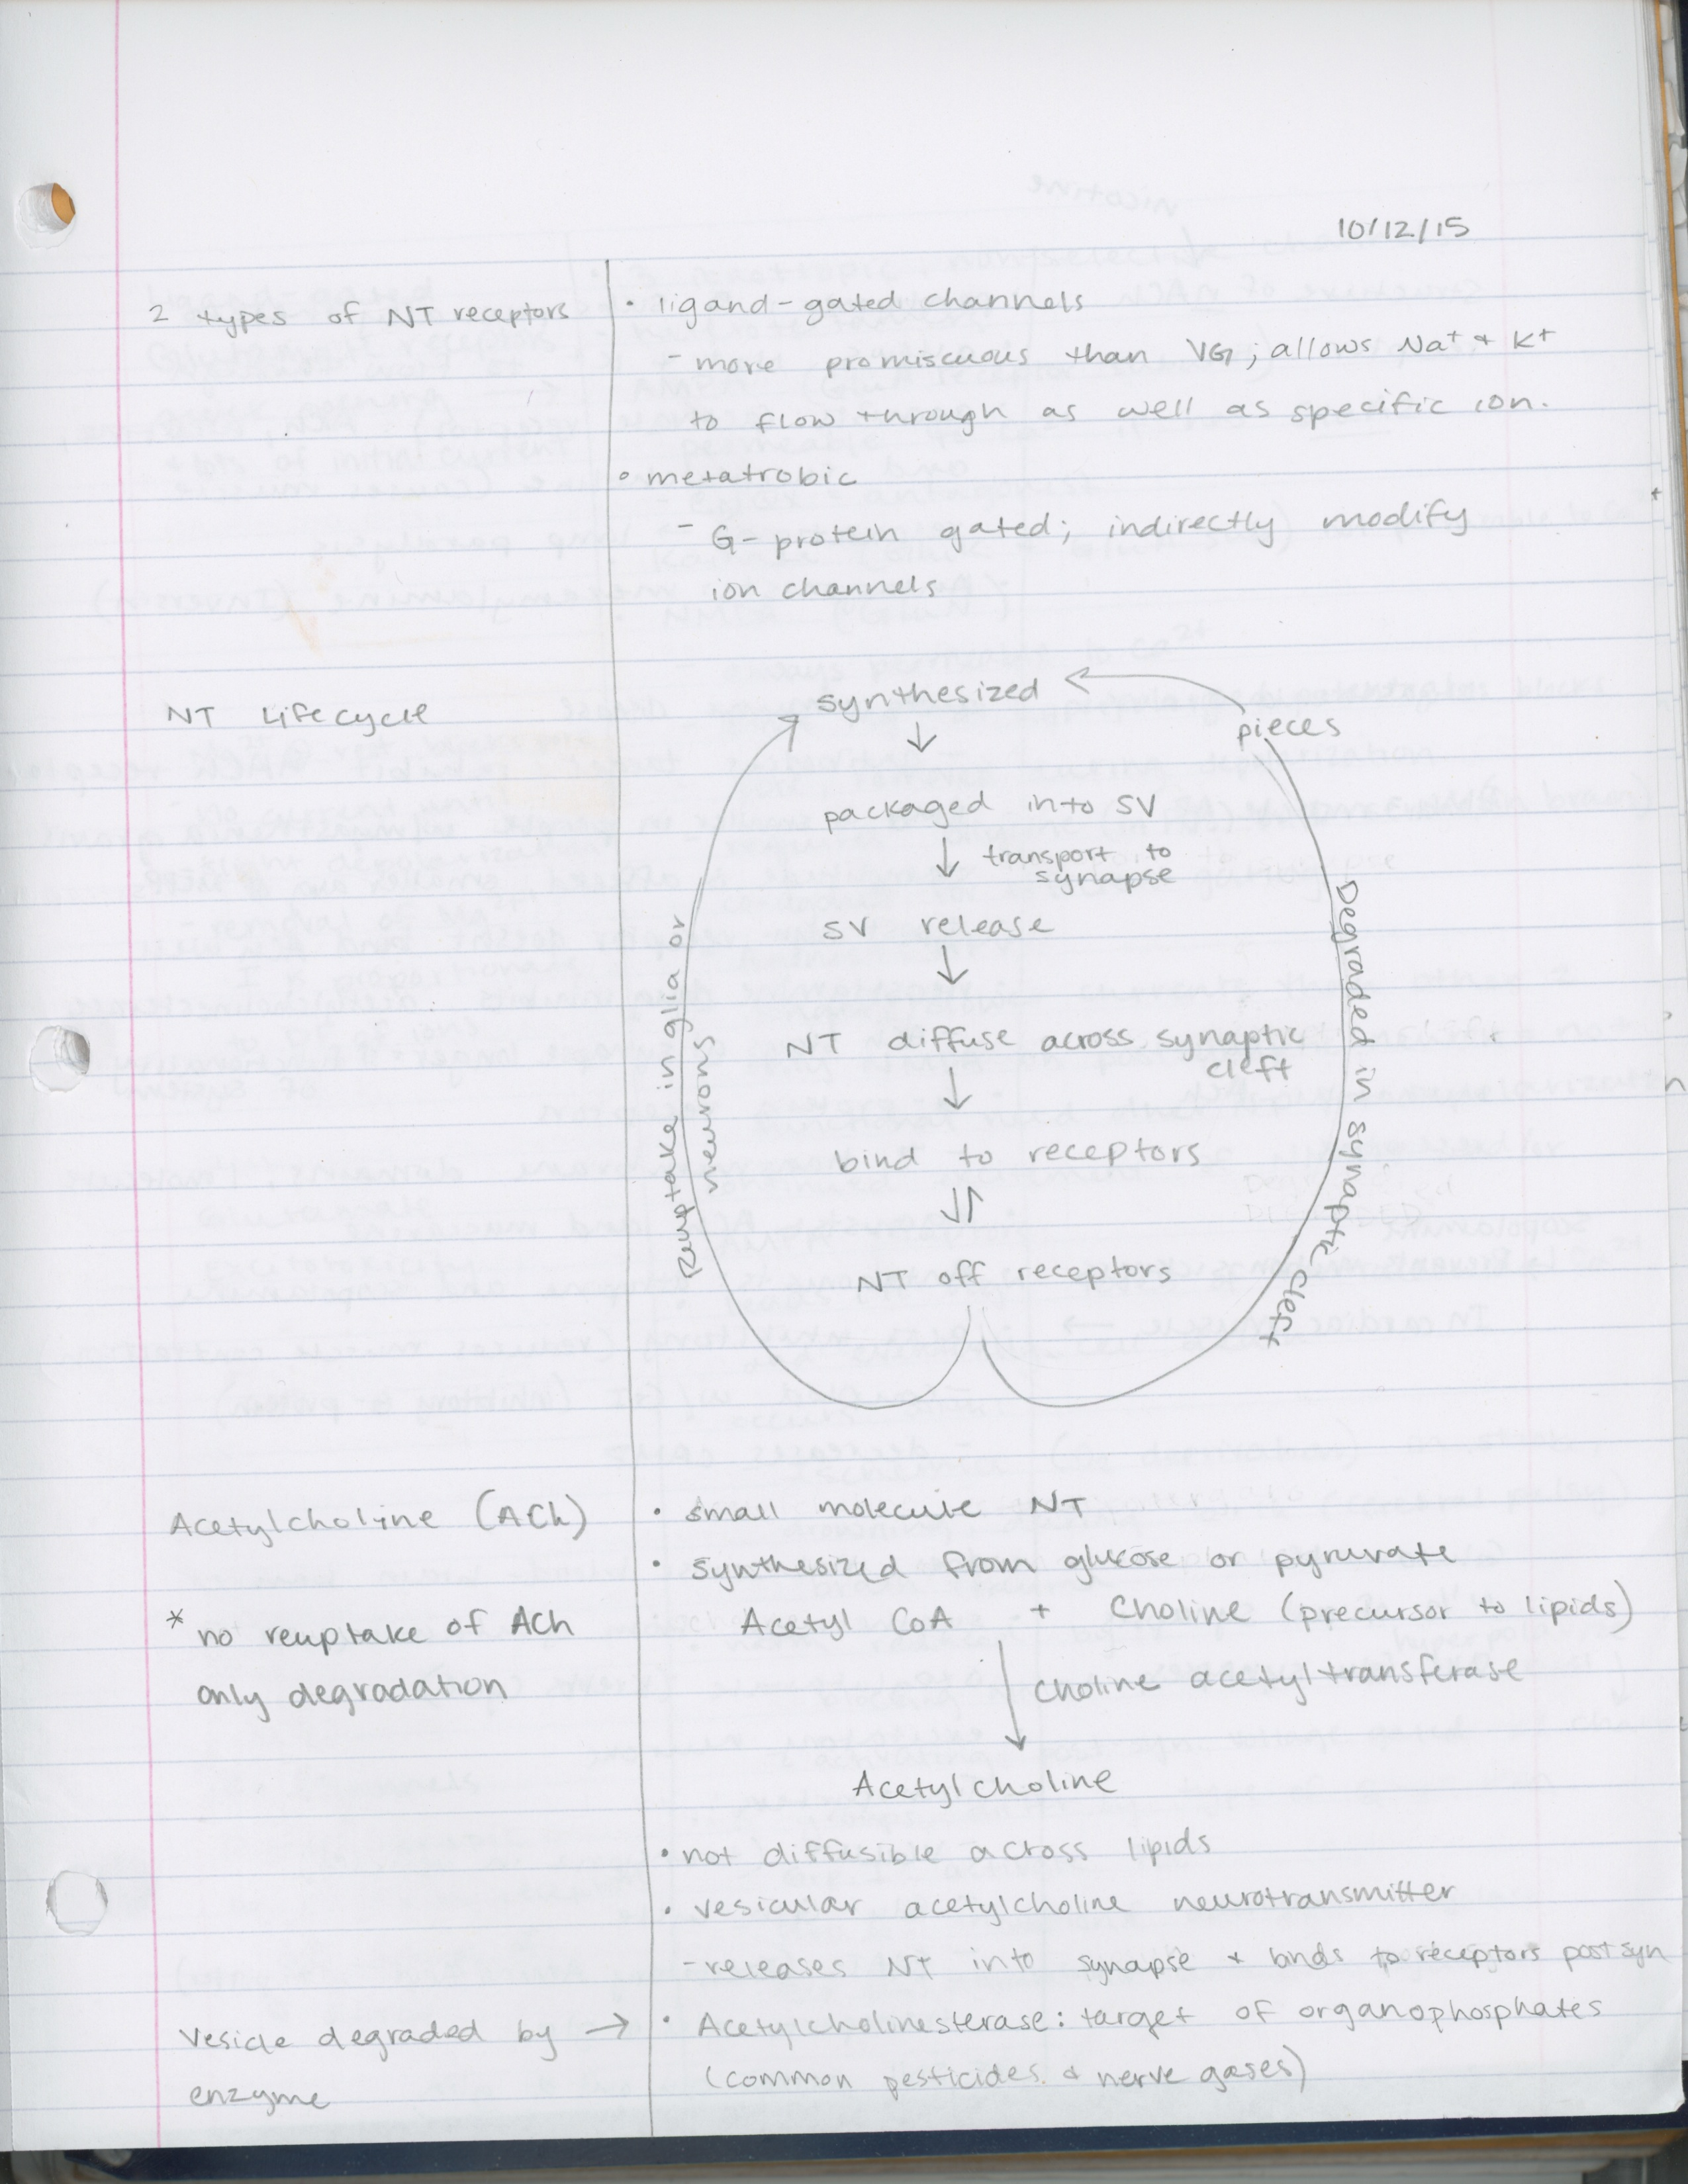 10/12/15
2 types of NT receptors
• ligand-gated channels
- more promiscuous than VG; allows Na⁺ + K⁺
to flow through as well as specific ion.
• metatrobic
- G-protein gated; indirectly modify
ion channels
NT Lifecycle
synthesized
pieces
↓
packaged into SV
↓ transport to
synapse
SV release
↓
NT diffuse across synaptic
cleft
↓
bind to receptors
↓↑
NT off receptors
Reuptake in glia or
neurons
Degraded in synaptic cleft
Acetylcholine (ACh)
• small molecule NT
• synthesized from glucose or pyruvate
* no reuptake of ACh
only degradation
Acetyl CoA + Choline (precursor to lipids)
↓ choline acetyltransferase
Acetylcholine
• not diffusible across lipids
• vesicular acetylcholine neurotransmitter
- releases NT into synapse + binds to receptors post syn
Vesicle degraded by →
enzyme
• Acetylcholinesterase: target of organophosphates
(common pesticides + nerve gases)